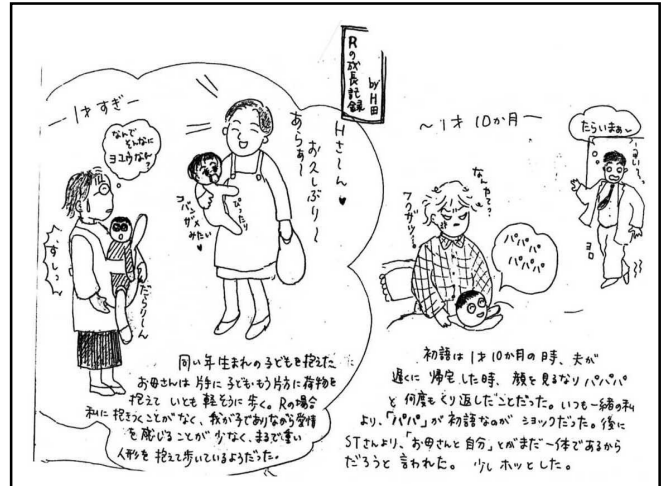 Rの成長記録
by H田
―1才すぎ―
なんで
そんなに
ヨユウなん?
ずしっ
んだらり~ん
Hさ~ん♥
お久しぶり~
あらぁ~
ぴったり
コバンザメ
みたい
♥
同じ年生まれの子どもを抱えた
お母さんは片手に子ども・もう片方に荷物を
抱えて いとも軽そうに歩く。Rの場合
私に抱きつくことがなく、我が子でありながら愛情
を感じることが少なく、まるで重い
人形を抱えて歩いているようだった。
~1才10か月~
たらいまぁ~
ヨロ
なんやて?
パパパ
パパパパ
初語は1才10か月の時、夫が
遅くに帰宅した時、顔を見るなりパパパ
と何度もくり返したことだった。いつも一緒の私
より、「パパ」が初語なのがショックだった。後に
STさんより、「お母さんと自分」とがまだ一体であるから
だろうと言われた。 少しホッとした。